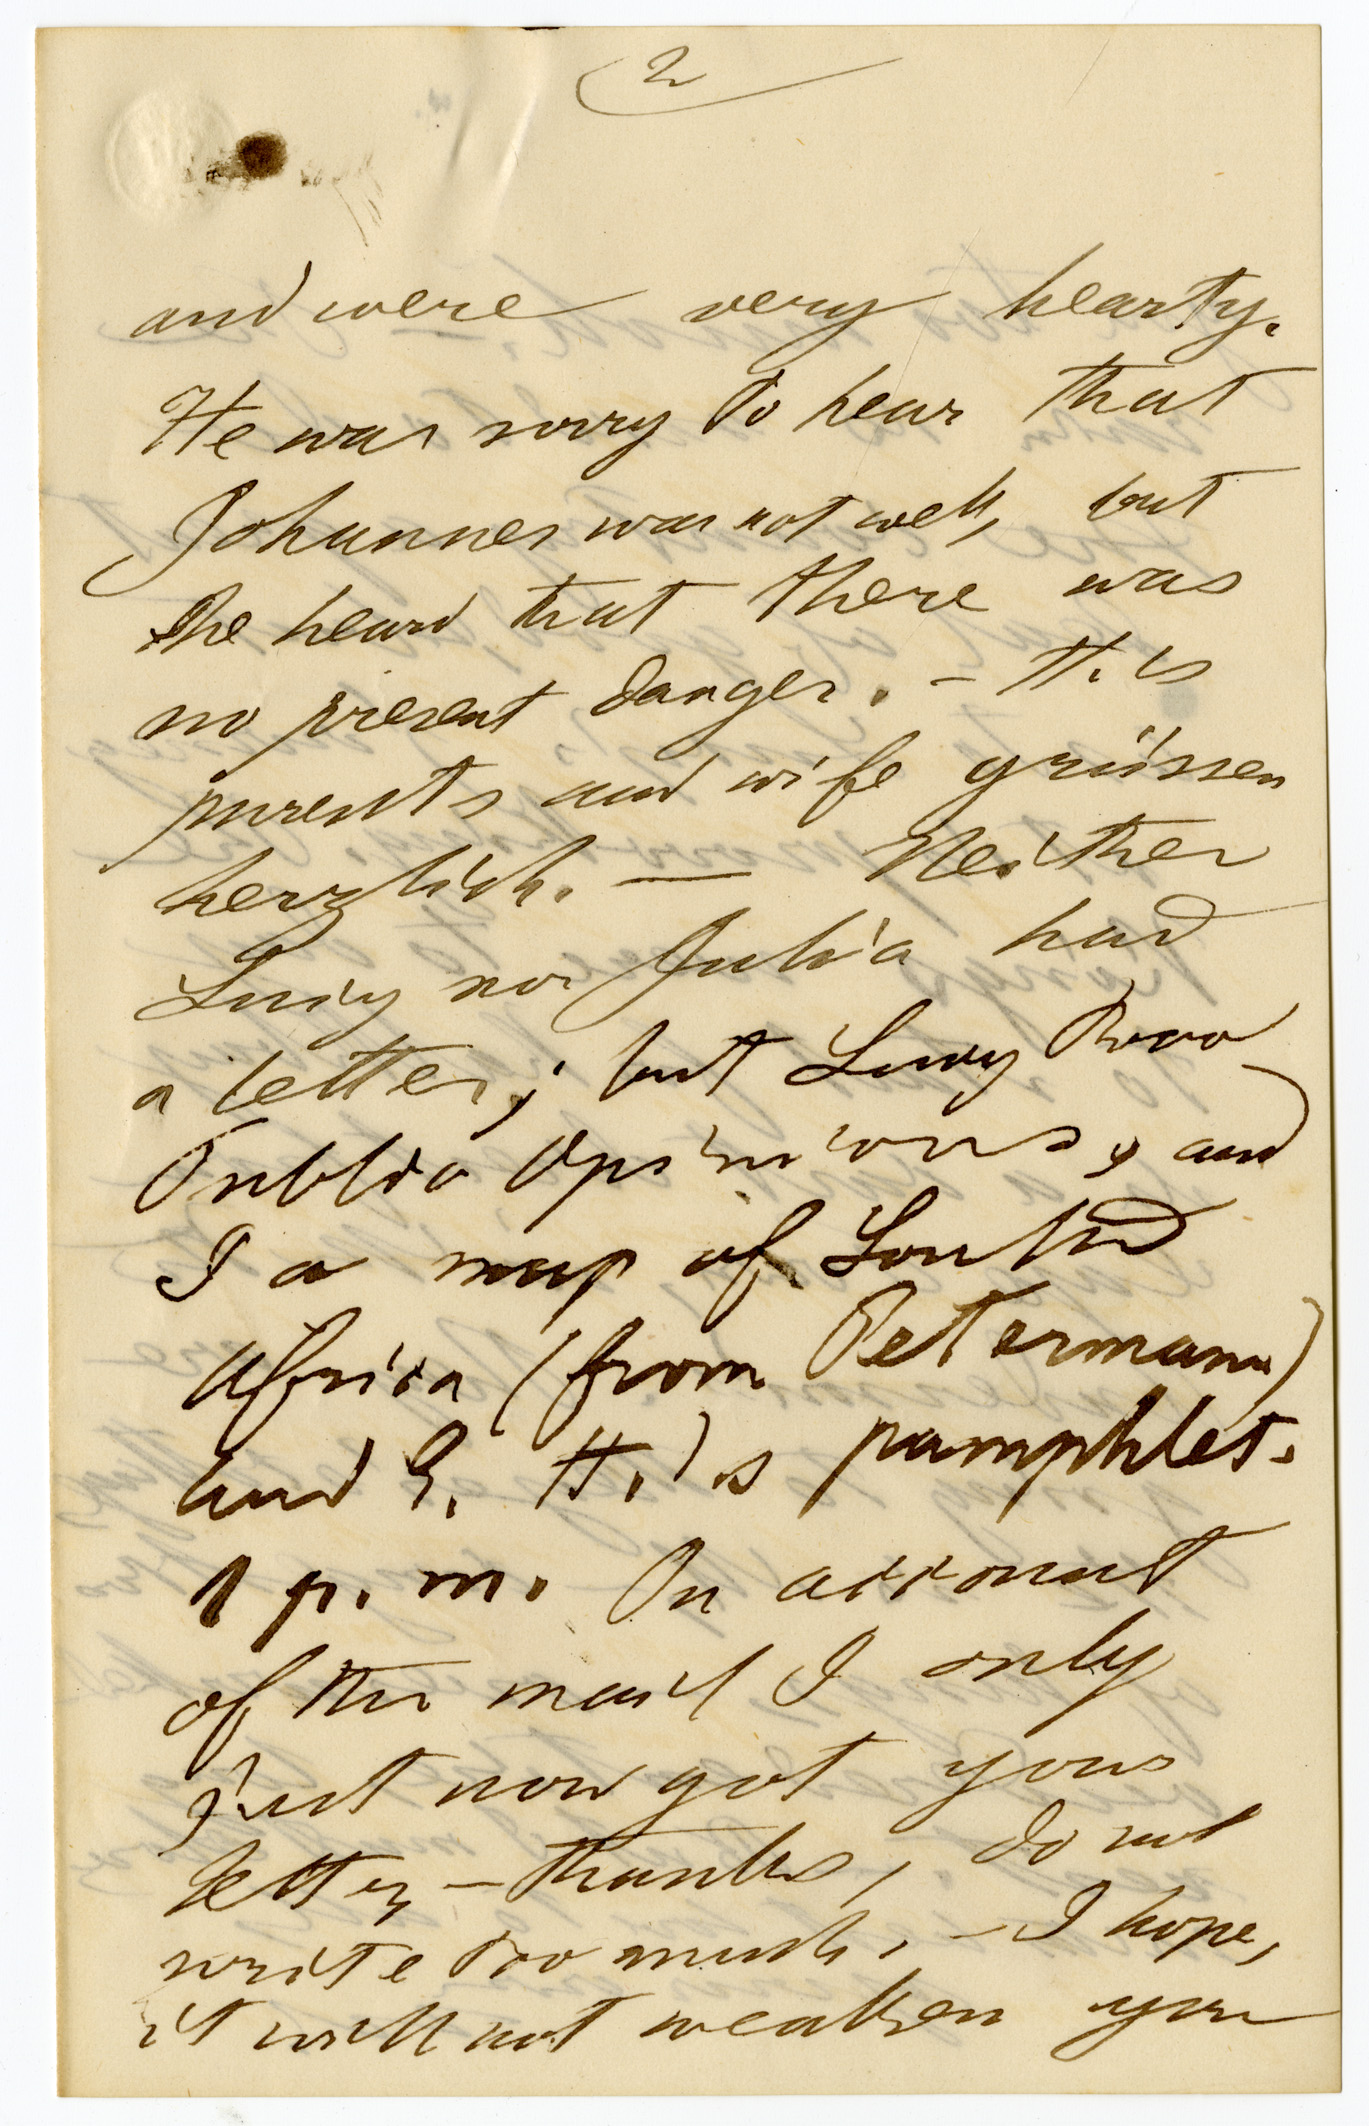 2
and were very hearty.
He was sorry to hear that
Johannes was not well, but
he heard that there was
no present danger. – His
parents and wife grüssen
herzlich. — Neither
Lucy nor Julia had
a letter; but Lucy two
Public Opinions, and
I a map of South
Africa (from Petermann)
and G. H.'s pamphlet.
1 p. m. On account
of the mail I only
just now got your
letter, – thanks, do not
write too much. – I hope,
it will not weaken you